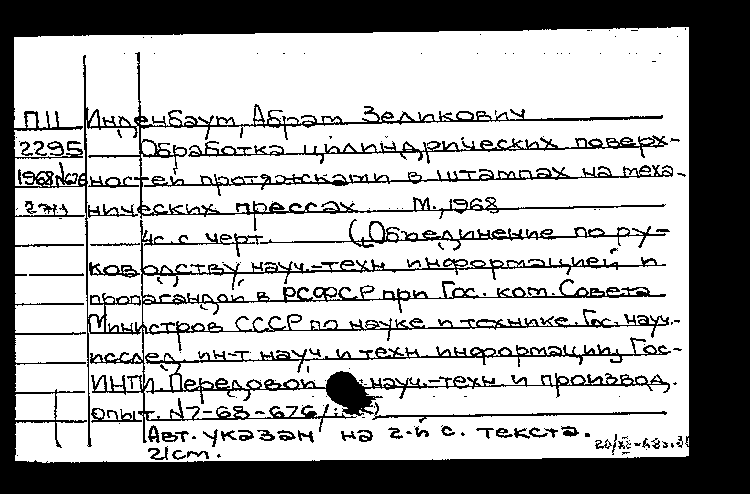 П11 Инденбаум, Абрам Зеликович
2295 Обработка цилиндрических поверх-
1968 №676 ностей протяжками в штампах на меха-
нических прессах. М., 1968
4с. с черт. („Объединение по ру-
ководству науч.-техн. информацией и
пропагандой в РСФСР при Гос. ком. Совета
Министров СССР по науке и технике. Гос. науч.-
исслед. ин-т науч. и техн. информации. Гос-
ИНТИ. Передовой науч.-техн. и производ.
опыт. №7-68-676/
Авт. указан на 2-й с. текста.
21cm.